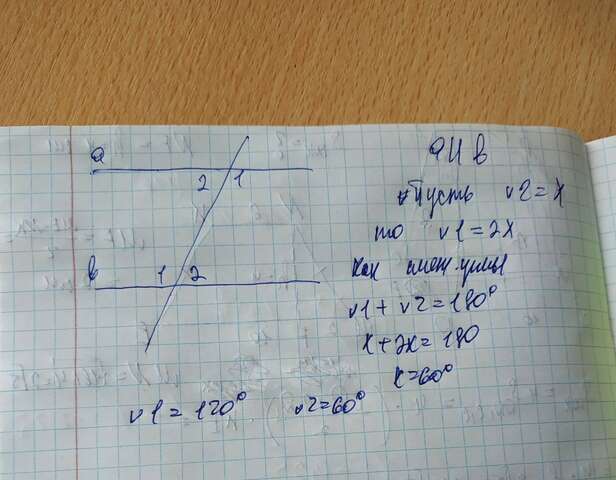 a
2 1
в
1 2
a || в
Пусть ∠2=x
то ∠1=2x
как смеж. углы
∠1+∠2=180°
x+2x=180
x=60°
∠1=120° ∠2=60°